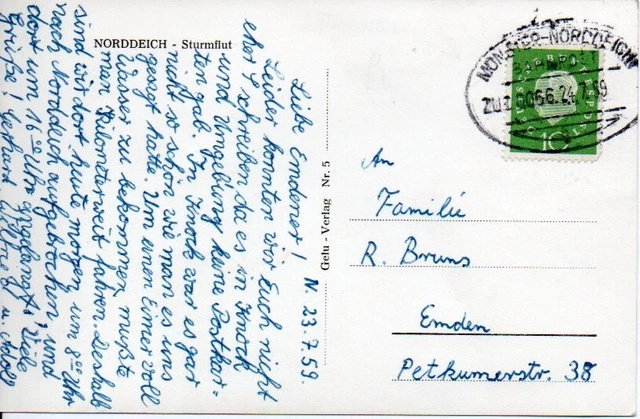 NORDDEICH - Sturmflut
N. 23.7.59.
Liebe Emdener!
Leider konnten wir Euch nicht
eher schreiben da es in Knock
und Umgebung keine Postkar=
ten gab. In Knock war es gar
nicht so schön wie man es uns
gesagt hatte. Um einen Eimer voll
Wasser zu bekommen mußte
man Kilometerweit fahren. Deshalb
sind wir dort heute morgen um 8⁰⁰ Uhr
nach Norddeich aufgebrochen und
dort um 16⁰⁰ Uhr angelangt. Viele
Grüße! Gerhard Wilfried u. Adolf
Gelu - Verlag Nr. 5
MÜNSTER-NORDDEICH
BAHNPOST
ZUG 00566 24.7.59
DEUTSCHE BUNDESPOST
10
An
Familie
R. Bruns
Emden
Petkumerstr. 38